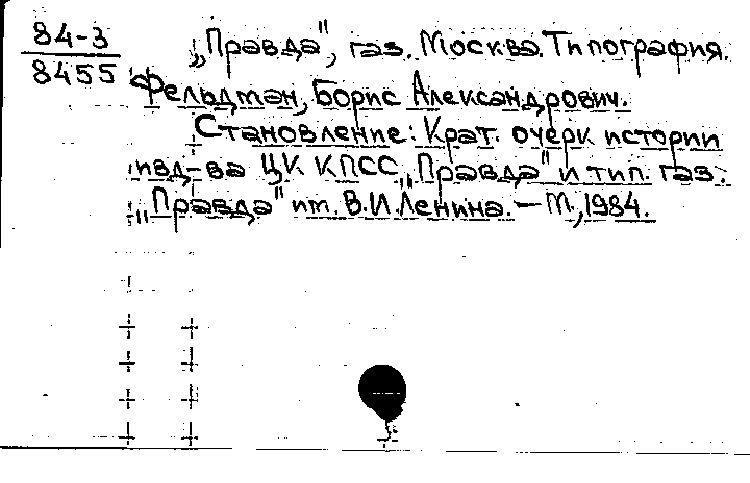 84-3
8455
„Правда", газ. Москва. Типография.
Фельдман, Борис Александрович.
Становление: Крат. очерк истории
изд-ва ЦК КПСС „Правда" и тип. газ.
„Правда" им. В.И. Ленина. — М., 1984.